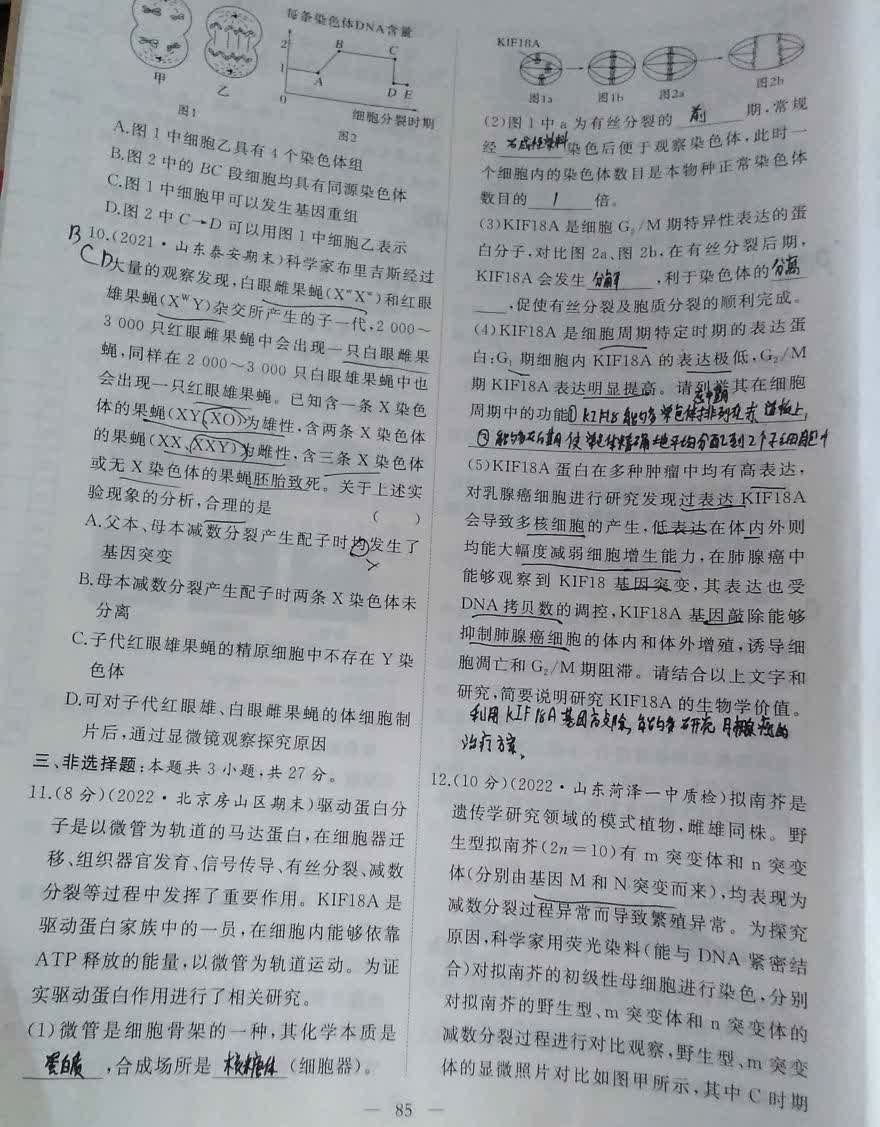 每条染色体DNA含量
2
B
C
1
A
D
E
0
甲
乙
细胞分裂时期
图1
图2
A.图1中细胞乙具有4个染色体组
B.图2中的BC段细胞均具有同源染色体
C.图1中细胞甲可以发生基因重组
D.图2中C→D可以用图1中细胞乙表示
B
CD
10.(2021·山东泰安期末)科学家布里吉斯经过
大量的观察发现,白眼雌果蝇(XʷXʷ)和红眼
雄果蝇(XᵂY)杂交所产生的子一代,2 000~
3 000只红眼雌果蝇中会出现一只白眼雌果
蝇,同样在2 000~3 000只白眼雄果蝇中也
会出现一只红眼雄果蝇。已知含一条X染色
体的果蝇(XY、XO)为雄性,含两条X染色体
的果蝇(XX、XXY)为雌性,含三条X染色体
或无X染色体的果蝇胚胎致死。关于上述实
验现象的分析,合理的是 ( )
A.父本、母本减数分裂产生配子时均发生了
基因突变
B.母本减数分裂产生配子时两条X染色体未
分离
C.子代红眼雄果蝇的精原细胞中不存在Y染
色体
D.可对子代红眼雄、白眼雌果蝇的体细胞制
片后,通过显微镜观察探究原因
三、非选择题:本题共3小题,共27分。
11.(8分)(2022·北京房山区期末)驱动蛋白分
子是以微管为轨道的马达蛋白,在细胞器迁
移、组织器官发育、信号传导、有丝分裂、减数
分裂等过程中发挥了重要作用。KIF18A是
驱动蛋白家族中的一员,在细胞内能够依靠
ATP释放的能量,以微管为轨道运动。为证
实驱动蛋白作用进行了相关研究。
(1)微管是细胞骨架的一种,其化学本质是
蛋白质,合成场所是 核糖体 (细胞器)。
KIF18A
图1a
图1b
图2a
图2b
(2)图1中a为有丝分裂的 前 期,常规
经 染色后便于观察染色体,此时一
个细胞内的染色体数目是本物种正常染色体
数目的 1 倍。
(3)KIF18A是细胞G₂/M期特异性表达的蛋
白分子,对比图2a、图2b,在有丝分裂后期,
KIF18A会发生 分解 ,利于染色体的 分离
,促使有丝分裂及胞质分裂的顺利完成。
(4)KIF18A是细胞周期特定时期的表达蛋
白:G₁期细胞内KIF18A的表达极低,G₂/M
期KIF18A表达明显提高。请列举其在细胞
周期中的功能①能够染色体排列在赤道板上,
②能够在后期使染色体精确地平均分配到2个子细胞中
(5)KIF18A蛋白在多种肿瘤中均有高表达,
对乳腺癌细胞进行研究发现过表达KIF18A
会导致多核细胞的产生,低表达在体内外则
均能大幅度减弱细胞增生能力,在肺腺癌中
能够观察到KIF18基因突变,其表达也受
DNA拷贝数的调控,KIF18A基因敲除能够
抑制肺腺癌细胞的体内和体外增殖,诱导细
胞凋亡和G₂/M期阻滞。请结合以上文字和
研究,简要说明研究KIF18A的生物学价值。
利用KIF18A基因敲除,能够研究肺腺癌的
治疗方案,
12.(10分)(2022·山东菏泽一中质检)拟南芥是
遗传学研究领域的模式植物,雌雄同株。野
生型拟南芥(2n=10)有m突变体和n突变
体(分别由基因M和N突变而来),均表现为
减数分裂过程异常而导致繁殖异常。为探究
原因,科学家用荧光染料(能与DNA紧密结
合)对拟南芥的初级性母细胞进行染色,分别
对拟南芥的野生型、m突变体和n突变体的
减数分裂过程进行对比观察,野生型、m突变
体的显微照片对比如图甲所示,其中C时期
— 85 —